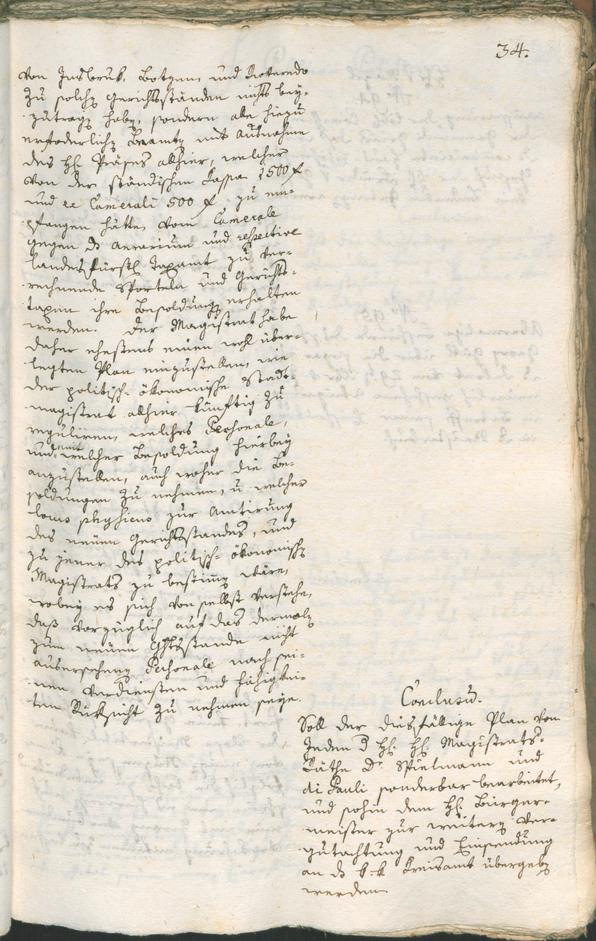 34.
von Insbruk, Botzen, und Roveredo
zu solchen Gerichtsständen nichts bey-
zutragen haben, sondern alle hiezu
erforderliche Beamte mit Ausnahme
des H. Präses alhier, welcher
von der ständischen Cassa 1500 f
und ex Camerali 500 f. zu em-
pfangen hätte, vom Camerale
gegen das Aerarium und respective
landesfürstl. Taxamt zu ver-
rechnende Sporteln und Gerichts-
taxen ihre Besoldungen erhalten
werden. Der Magistrat habe
daher ehestens einen wohl über-
legten Plan einzustellen, wie
der politisch-ökonomische Stadt-
magistrat alhier künftig zu
reguliren, welches Personale,
und mit welcher Besoldung hierbey
anzustellen, auch woher die Be-
soldungen zu nehmen, u. welcher
locus physicus zur Amtirung
des neuen Gerichtsstandes, und
zu jener des politisch-ökonomischen
Magistrats zu bestimmen wäre,
wobey es sich von selbst verstehe,
daß vorzüglich auf das dermalen
zum neuen Ghtsstande nicht
übersehene Personale nach sei-
nen Verdiensten und Fähigkei-
ten Rüksicht zu nehmen seye.
Conclusum.
Soll der diesfällige Plan von
Jedem d. H. H. Magistrats-
Räthe Dr. Spielmann und
di Pauli sonderbar bearbeitet,
und sohin dem H. Bürger-
meister zur weitern Ver-
gutachtung und Einsendung
an das k. k. Kreisamt übergeben
werden.